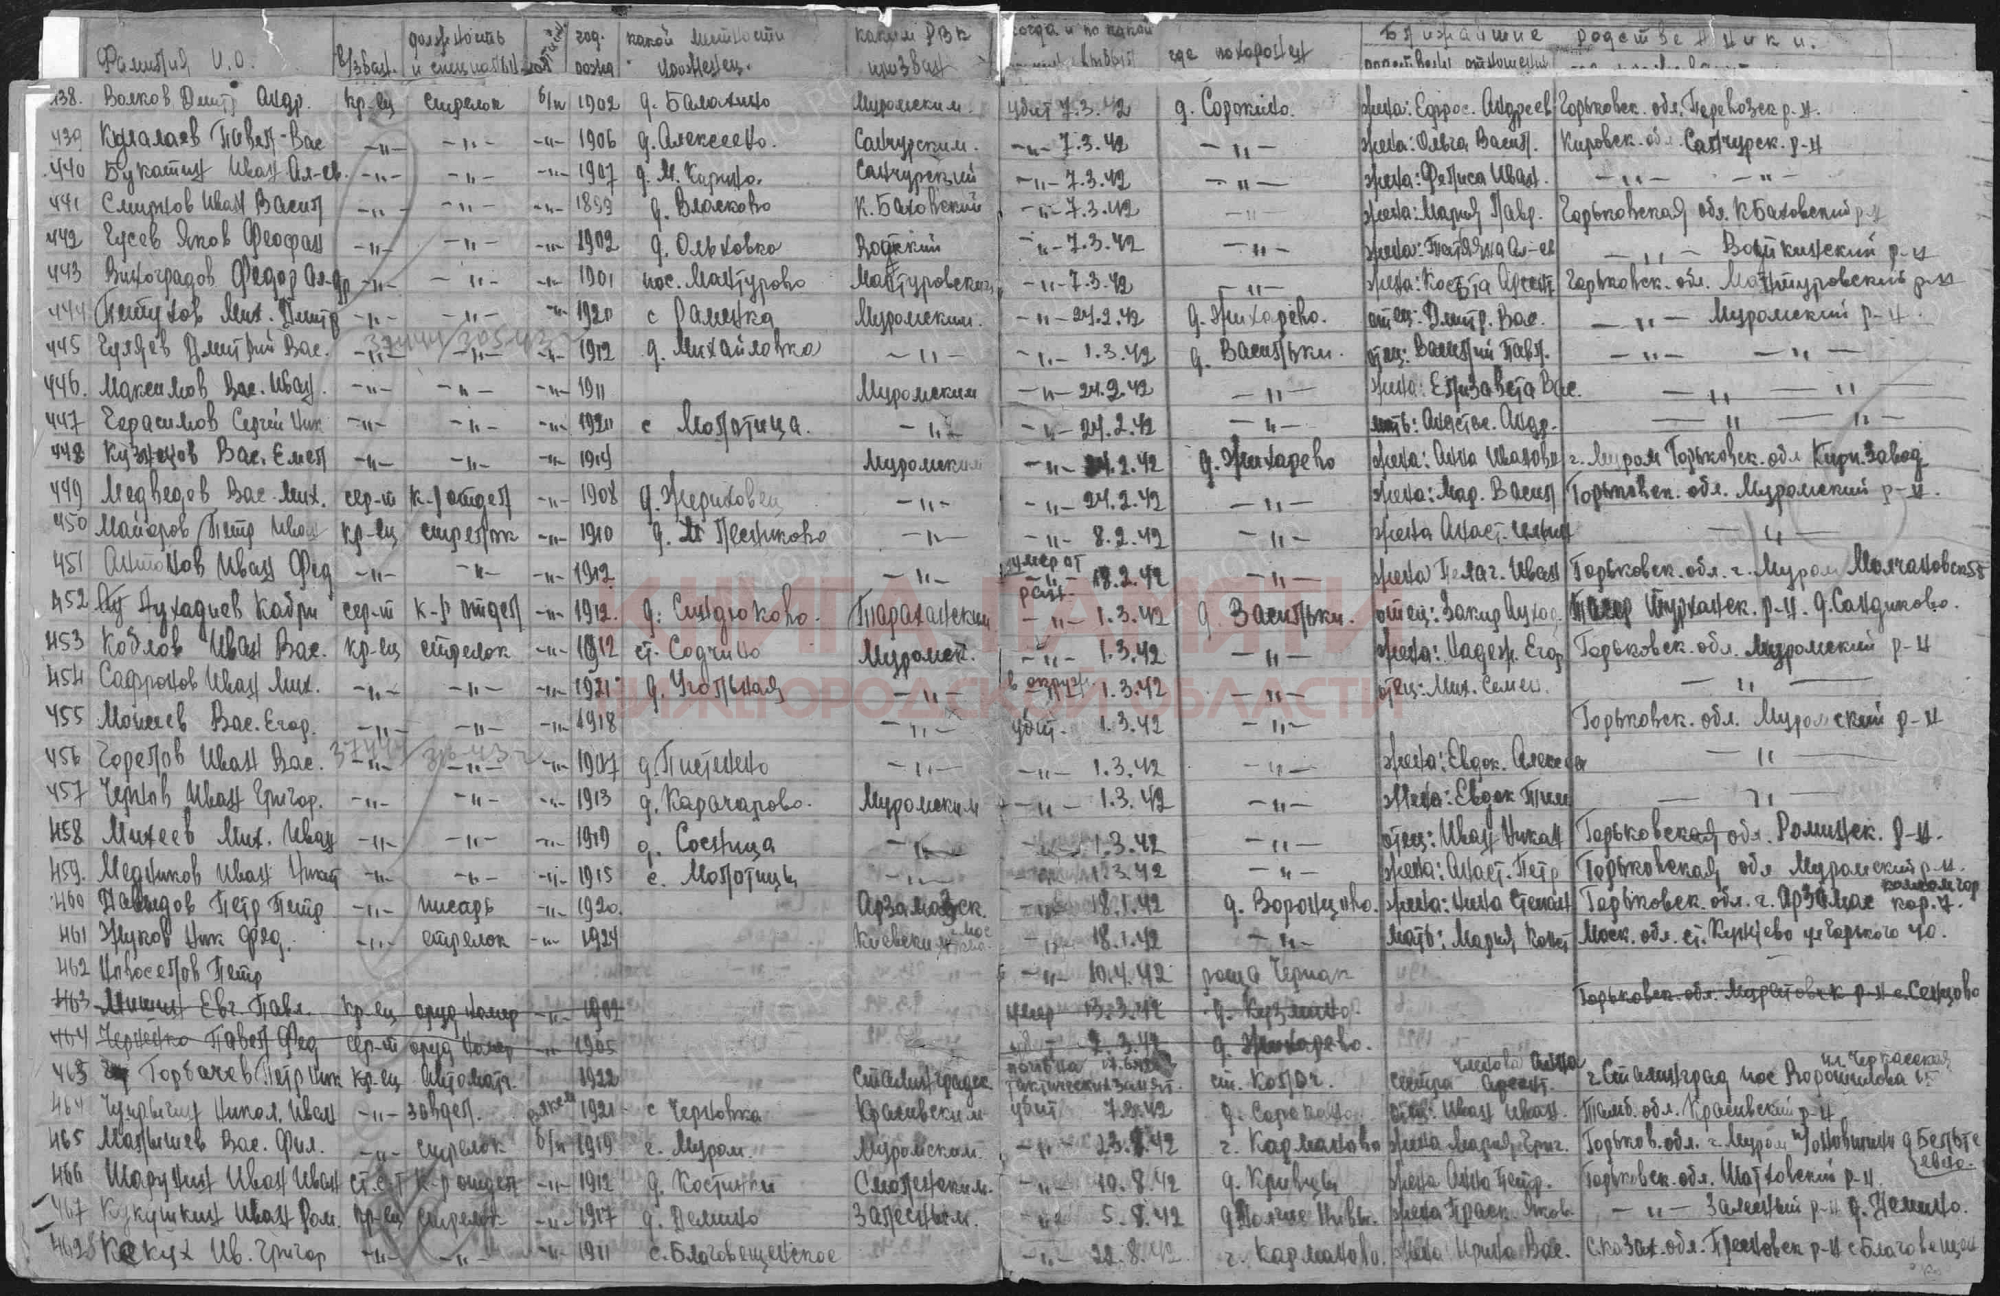 Фамилия И.О. в/зван. должность и специальн. год. рожд какой местности уроженец. каким РВК призван когда и по какой выбыл где похоронен Ближайшие родственники.
438. Волков Дмит Андр. кр-ец стрелок б/п 1902 д. Балахино Муромским. убит 7.3.42 д. Сорокино. жена: Ефрос. Андреев Горьковск. обл. Перевозск р-н.
439 Кулалаев Павел Вас -"- -"- -"- 1906 д. Алексеено. Санчурским. -"- 7.3.42 -"- жена: Ольга Васил. Кировск. обл. Санчурск. р-н
440 Букатин Иван Ал-ев. -"- -"- -"- 1907 д. М. Карино. Санчурский -"- 7.3.42 -"- жена: Фелиса Иван. -"- -"-
441 Смирнов Иван Васил -"- -"- -"- 1899 д. Власково К. Баковский -"- 7.3.42 -"- жена: Мария Павр. Горьковская обл. К Баковский р-н
442 Гусев Яков Феофан -"- -"- -"- 1902 д. Ольховка -"- 7.3.42 -"- жена: Татьяна Ал-ев -"- Воткинский р-н
443 Виноградов Федор Ал-др -"- -"- -"- 1901 пос. Мантурово Мантуровским -"- 7.3.42 -"- жена: Горьковск. обл. Мантуровский р-н
444 Петухов Мих. Дмитр -"- -"- -"- 1920 с Муромским. -"- 24.2.42 д. Жихарево. отец: Дмитр. Вас. -"- Муромский р-н.
445 Гуляев Дмитрий Вас. -"- -"- -"- 1912 д. Михайловка -"- -"- 1.3.42 д. Васильки. отец: Василий Павл. -"- -"-
446. Максимов Вас. Иван. -"- -"- -"- 1911 Муромским -"- 24.2.42 -"- жена: Елизавета Вас. -"- "
447 Герасимов Сергей Ник -"- -"- -"- 1920 с Молотица. -"- -"- 24.2.42 -"- мать: Анастас. Андр. " "
448 Кузнецов Вас. Емел -"- -"- -"- 1914 Муромским -"- 24.2.42 д. Жихарево жена: Анна Иванова г. Муром Горьковск. обл Кирп. Завод
449 Медведев Вас. Мих. сер-т к-р отдел -"- 1908 д. Жериховец -"- -"- 24.2.42 -"- жена: Мар. Васил Горьковск. обл. Муромский р-н.
450 Майоров Петр Иван кр-ец стрелок -"- 1910 д. Песниково -"- -"- 8.2.42 -"- жена Анаст. Ильин -"-
451 Антонов Иван Фед -"- -"- -"- 1912. -"- умер от ран. 18.2.42 -"- жена Пелаг. Иван Горьковск. обл. г. Муром
452 Нухадиев Кабри сер-т к-р отдел -"- 1912. д. Синдюково. Тарханский -"- 1.3.42 д. Васильки. отец: Закир р-н. д. Сандиково.
453 Козлов Иван Вас. кр-ец стрелок -"- 1912 ст. Содчино Муромск. -"- 1.3.42 -"- жена: Надеж. Егор Горьковск. обл. Муромский р-н
454 Сафронов Иван Мих. -"- -"- -"- 1921 д. Угольная -"- в окруж. 1.3.42 -"- отец: Мих. Семен. -"-
455 Моисеев Вас. Егор. -"- -"- -"- 1918 -"- убит. 1.3.42 -"- Горьковск. обл. Муромский р-н
456 Горелов Иван Вас. -"- -"- -"- 1907 д. Пистино -"- -"- 1.3.42 -"- жена: Евдок. Алексеев "
457 Чернов Иван Григор. -"- -"- -"- 1913 д. Карачарово. Муромским -"- 1.3.42 -"- жена: Евдок Тим -"-
458 Михеев Мих. Иван -"- -"- -"- 1919 д. Сосница -"- 1.3.42 -"- отец: Иван Никан Горьковская обл. Роминск. р-н.
459. Медников Иван Никит -"- -"- -"- 1915 с. Молотицы -"- 1.3.42 -"- жена: Анаст. Петр Горьковская обл Муромский р-н.
460 Давыдов Петр Петр -"- писарь -"- 1920. Арзамазск. -"- 18.1.42 д. Воронцово. жена: Нина Степан Горьковск. обл. г. Арзамас кор. 7.
461 Жуков Ник Фед. -"- стрелок -"- 1924 Киевским -"- 18.1.42 -"- мать: Мария Конст Моск. обл. ст. Кунцево ул Горького 40.
462 Новоселов Петр -"- 10.4.42 роща Черпак
463 Мишин Евг. Павл. кр-ец оруд номер -"- 1902 умер 13.3.42 д. Кузмино. Горьковск. обл. р-н с. Сенцово
464 Черненко Павел Фед сер-т оруд номер -"- 1905 2.3.42 д. Жихарево.
463 Горбачев Петр Ник кр-ец автомат. 1922 Сталинградск тактических занят. ст. Колоч. сестра г. Сталинград пос Ворошилова
464 Чупрыгин Никол. Иван -"- завдел. 1921 с Черновка Красивским убит 7.8.42 отец: Иван Иван. Тамб. обл. Красивский р-н
465 Малышев Вас. Фил. -"- стрелок б/п 1919 г. Муром. Муромским. -"- 23.8.42 г. Карманово жена Мария Григ. Горьков. обл. г. Муром
466 Шарунин Иван Иван ст. с-т к-р отдел -"- 1912 д. Костинки Смоленским. -"- 10.8.42 д. Кривцы жена Анна Петр. Горьковск. обл. Шатковский р-н.
467 Кукушкин Иван Ром. кр-ец стрелок -"- 1917 д. Демино Залесным. -"- 5.8.42 жена Праск. Яков. -"- Залесный р-н д. Демино.
468 Кекух Ив. Григор -"- -"- -"- 1911 с. Благовещенское -"- 22.8.42 г. Карманово. жена Ирина Вас. С.казах. обл. Пресновск р-н с Благовещен
КНИГА ПАМЯТИ
НИЖЕГОРОДСКОЙ ОБЛАСТИ